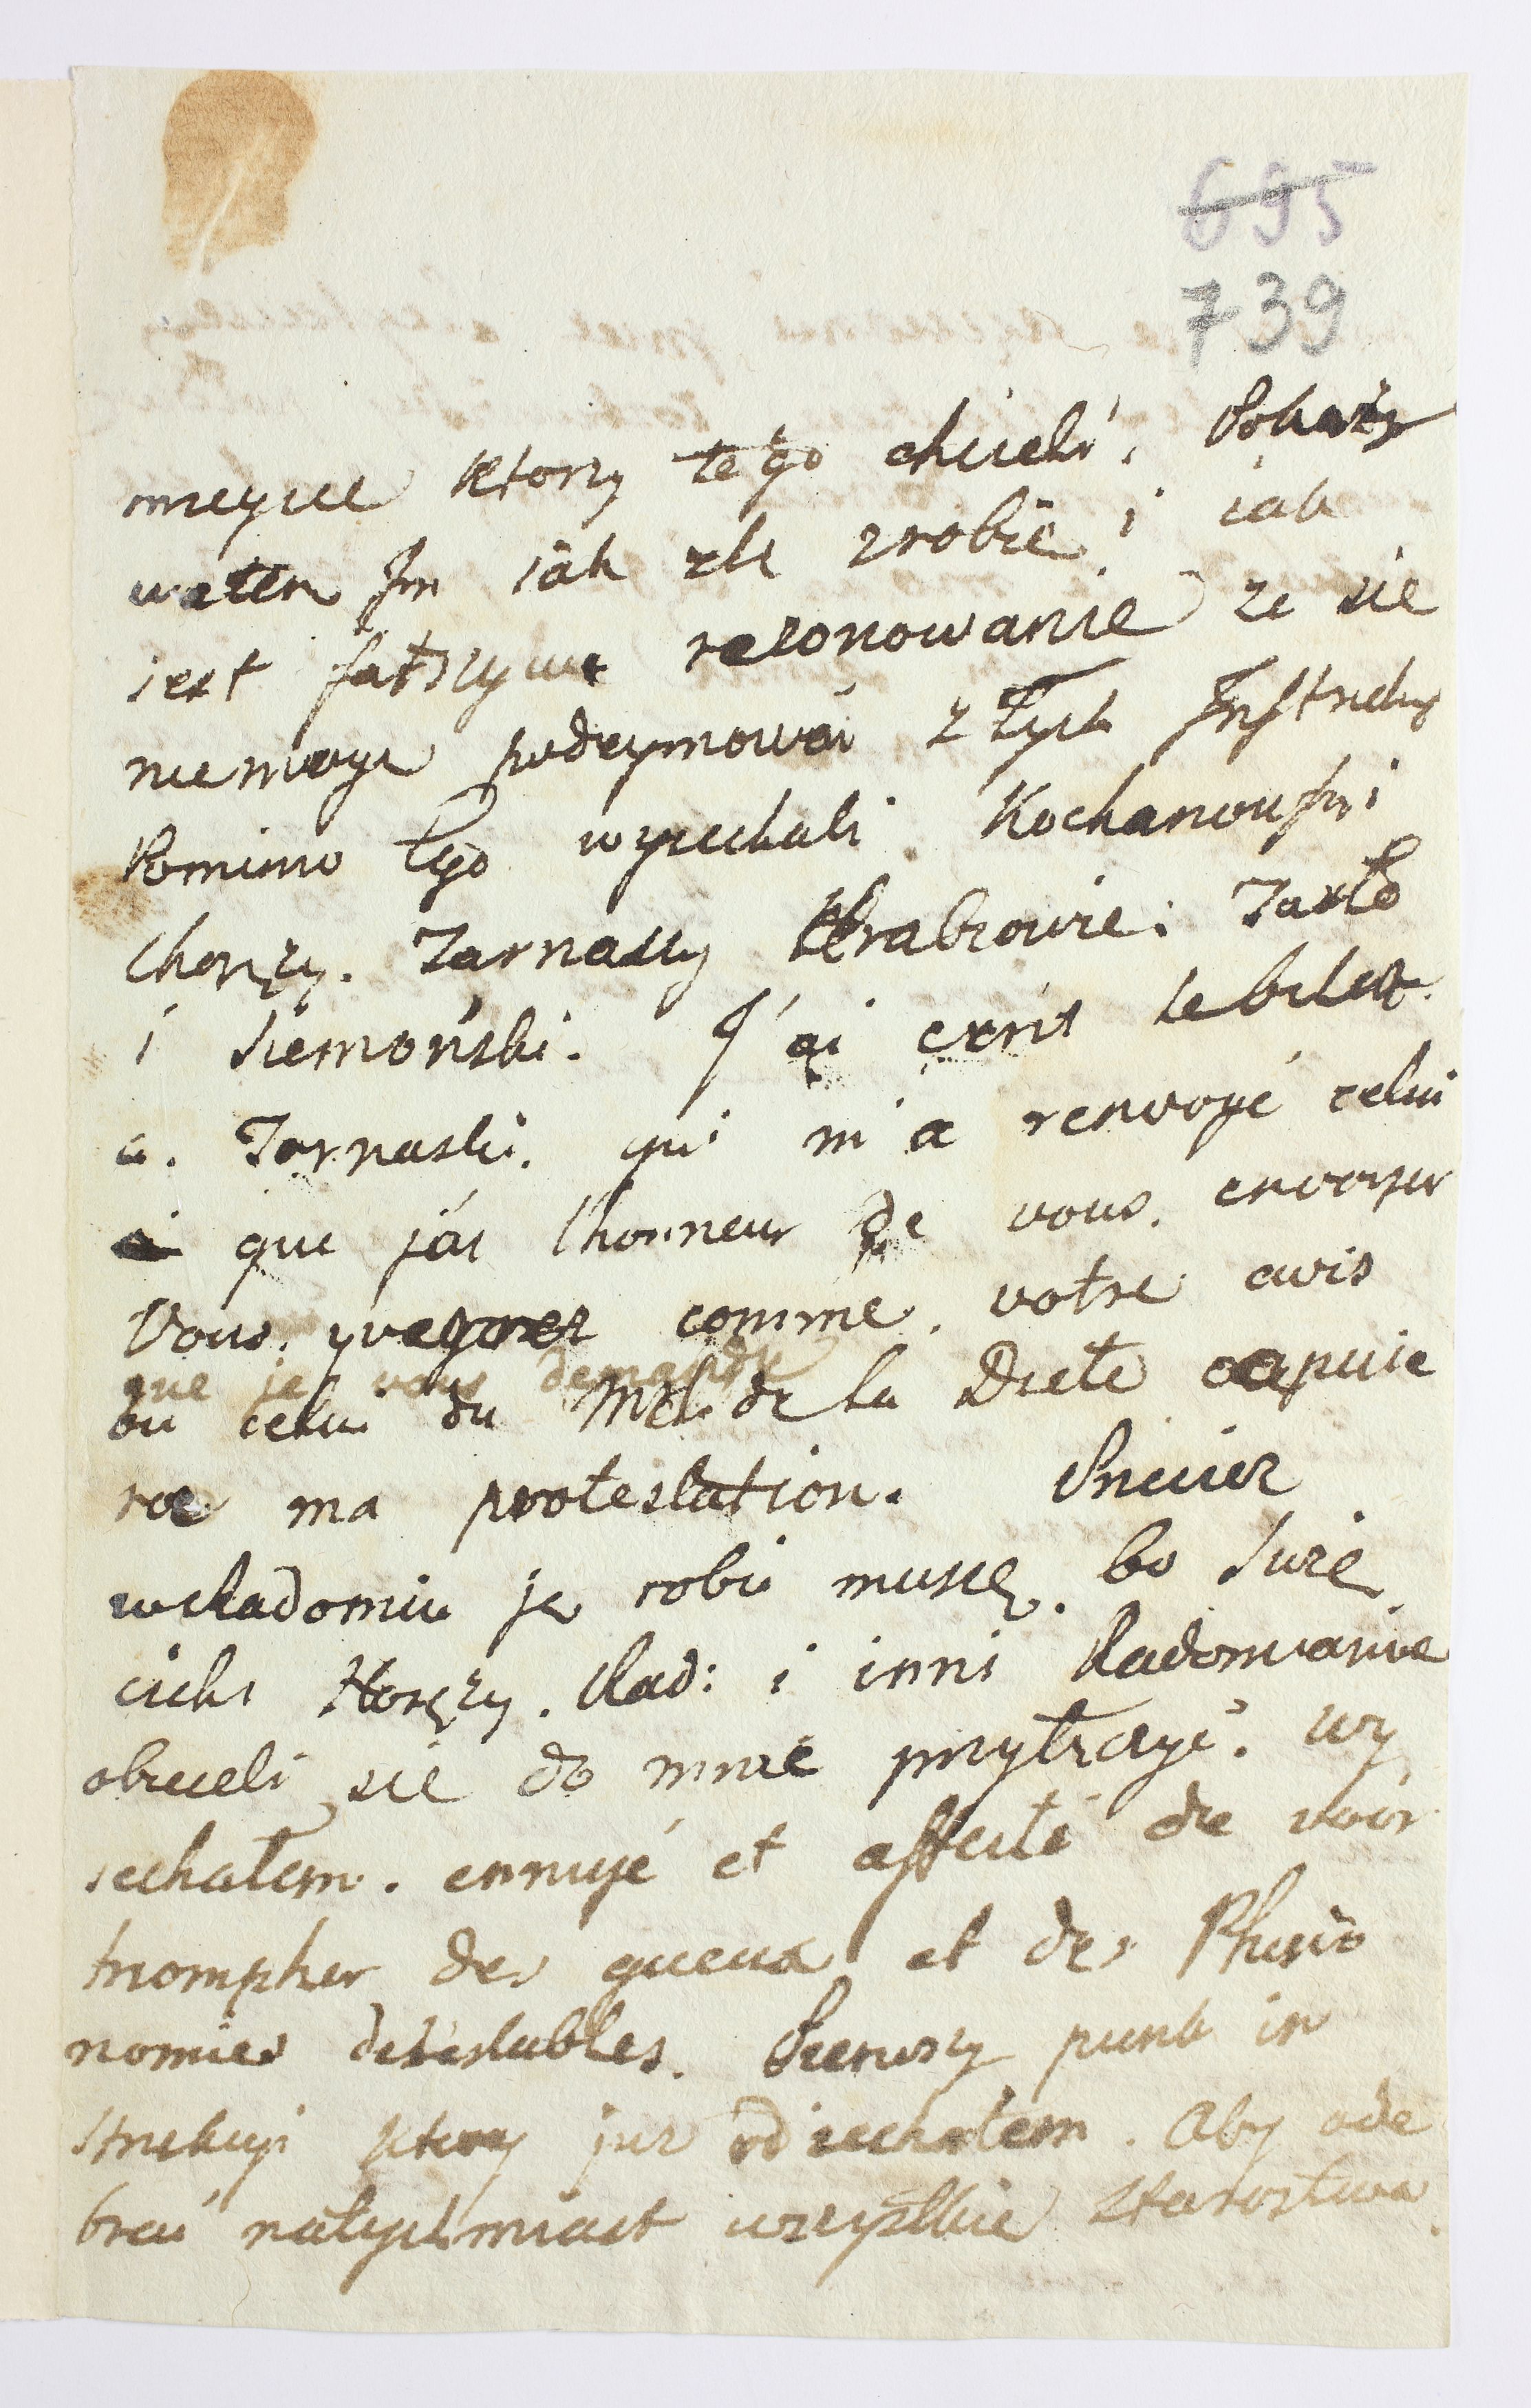 695
739
mieysce ktorzy tego chcieli, Pokazy
wałem Jm iak zle zrobie, i iak
iest fałszywe rezonowanie ze sie
niemoge podeymować z Tych Jnstrukcy
Pomimo Tego wyiechali Kochanowski
Chorązy. Jarnaccy Chrabiowie: Jaxło
i Siemoński. J'ai ecrit le bilet
a. Jarnaski. qui m'a renvoyé celui
que j'ai lhonneur de vous. envoyer
Vous. comme. votre avis
que je vous demande
ou celui du Mchl de la Diete apuie
roe ma protestation. Oneiez
wiadomiu je robic musze. bo Swie
cicki Horązy. Rad: i inni Radomianie
obieceli sie do mnie przyłączyć. wy
iechałem. ennuyé et affecté de voir
triompher des gueux et des Phisio
nomies detestables. Pierwszy punkt in
strukcyi ktory juz odiechałem. Aby ode
brać natychmiast wszystkie Starostwa.